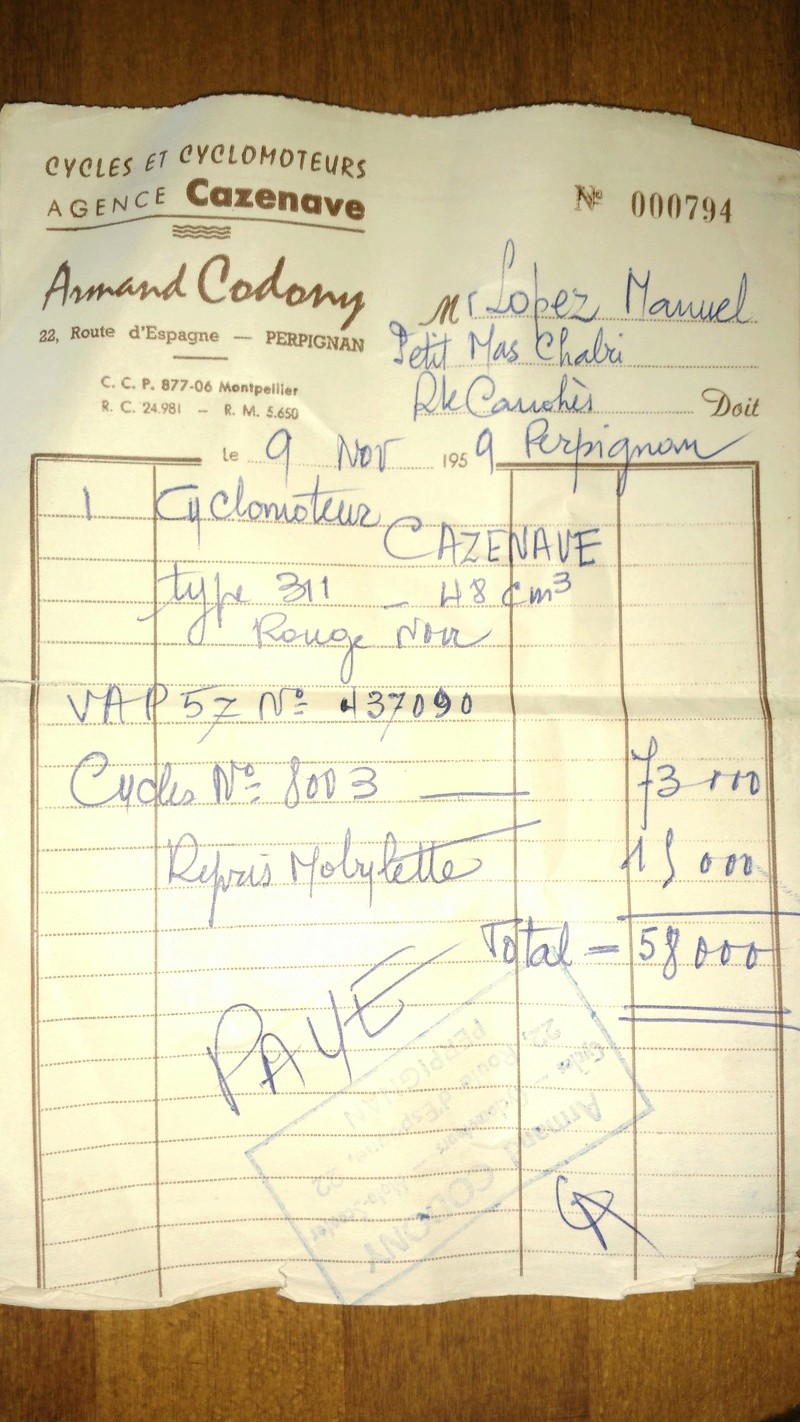 CYCLES ET CYCLOMOTEURS
AGENCE Cazenave
Nº 000794
Armand Codony
22, Route d'Espagne — PERPIGNAN
C. C. P. 877-06 Montpellier
R. C. 24.981 — R. M. 5.650
Mr Lopez Manuel
Petit Mas Chabri
Rte Canohès Doit
le 9 Nov 1959 Perpignan
1 Cyclomoteur
CAZENAVE
type 311 - 48 cm3
Rouge Noir
VAP 57 Nº 437090
Cycles Nº 8003 — 73 000
Repris Mobylette 15 000
Total = 58 000
PAYE
Armand CODONY
22, Route d'Espagne
PERPIGNAN